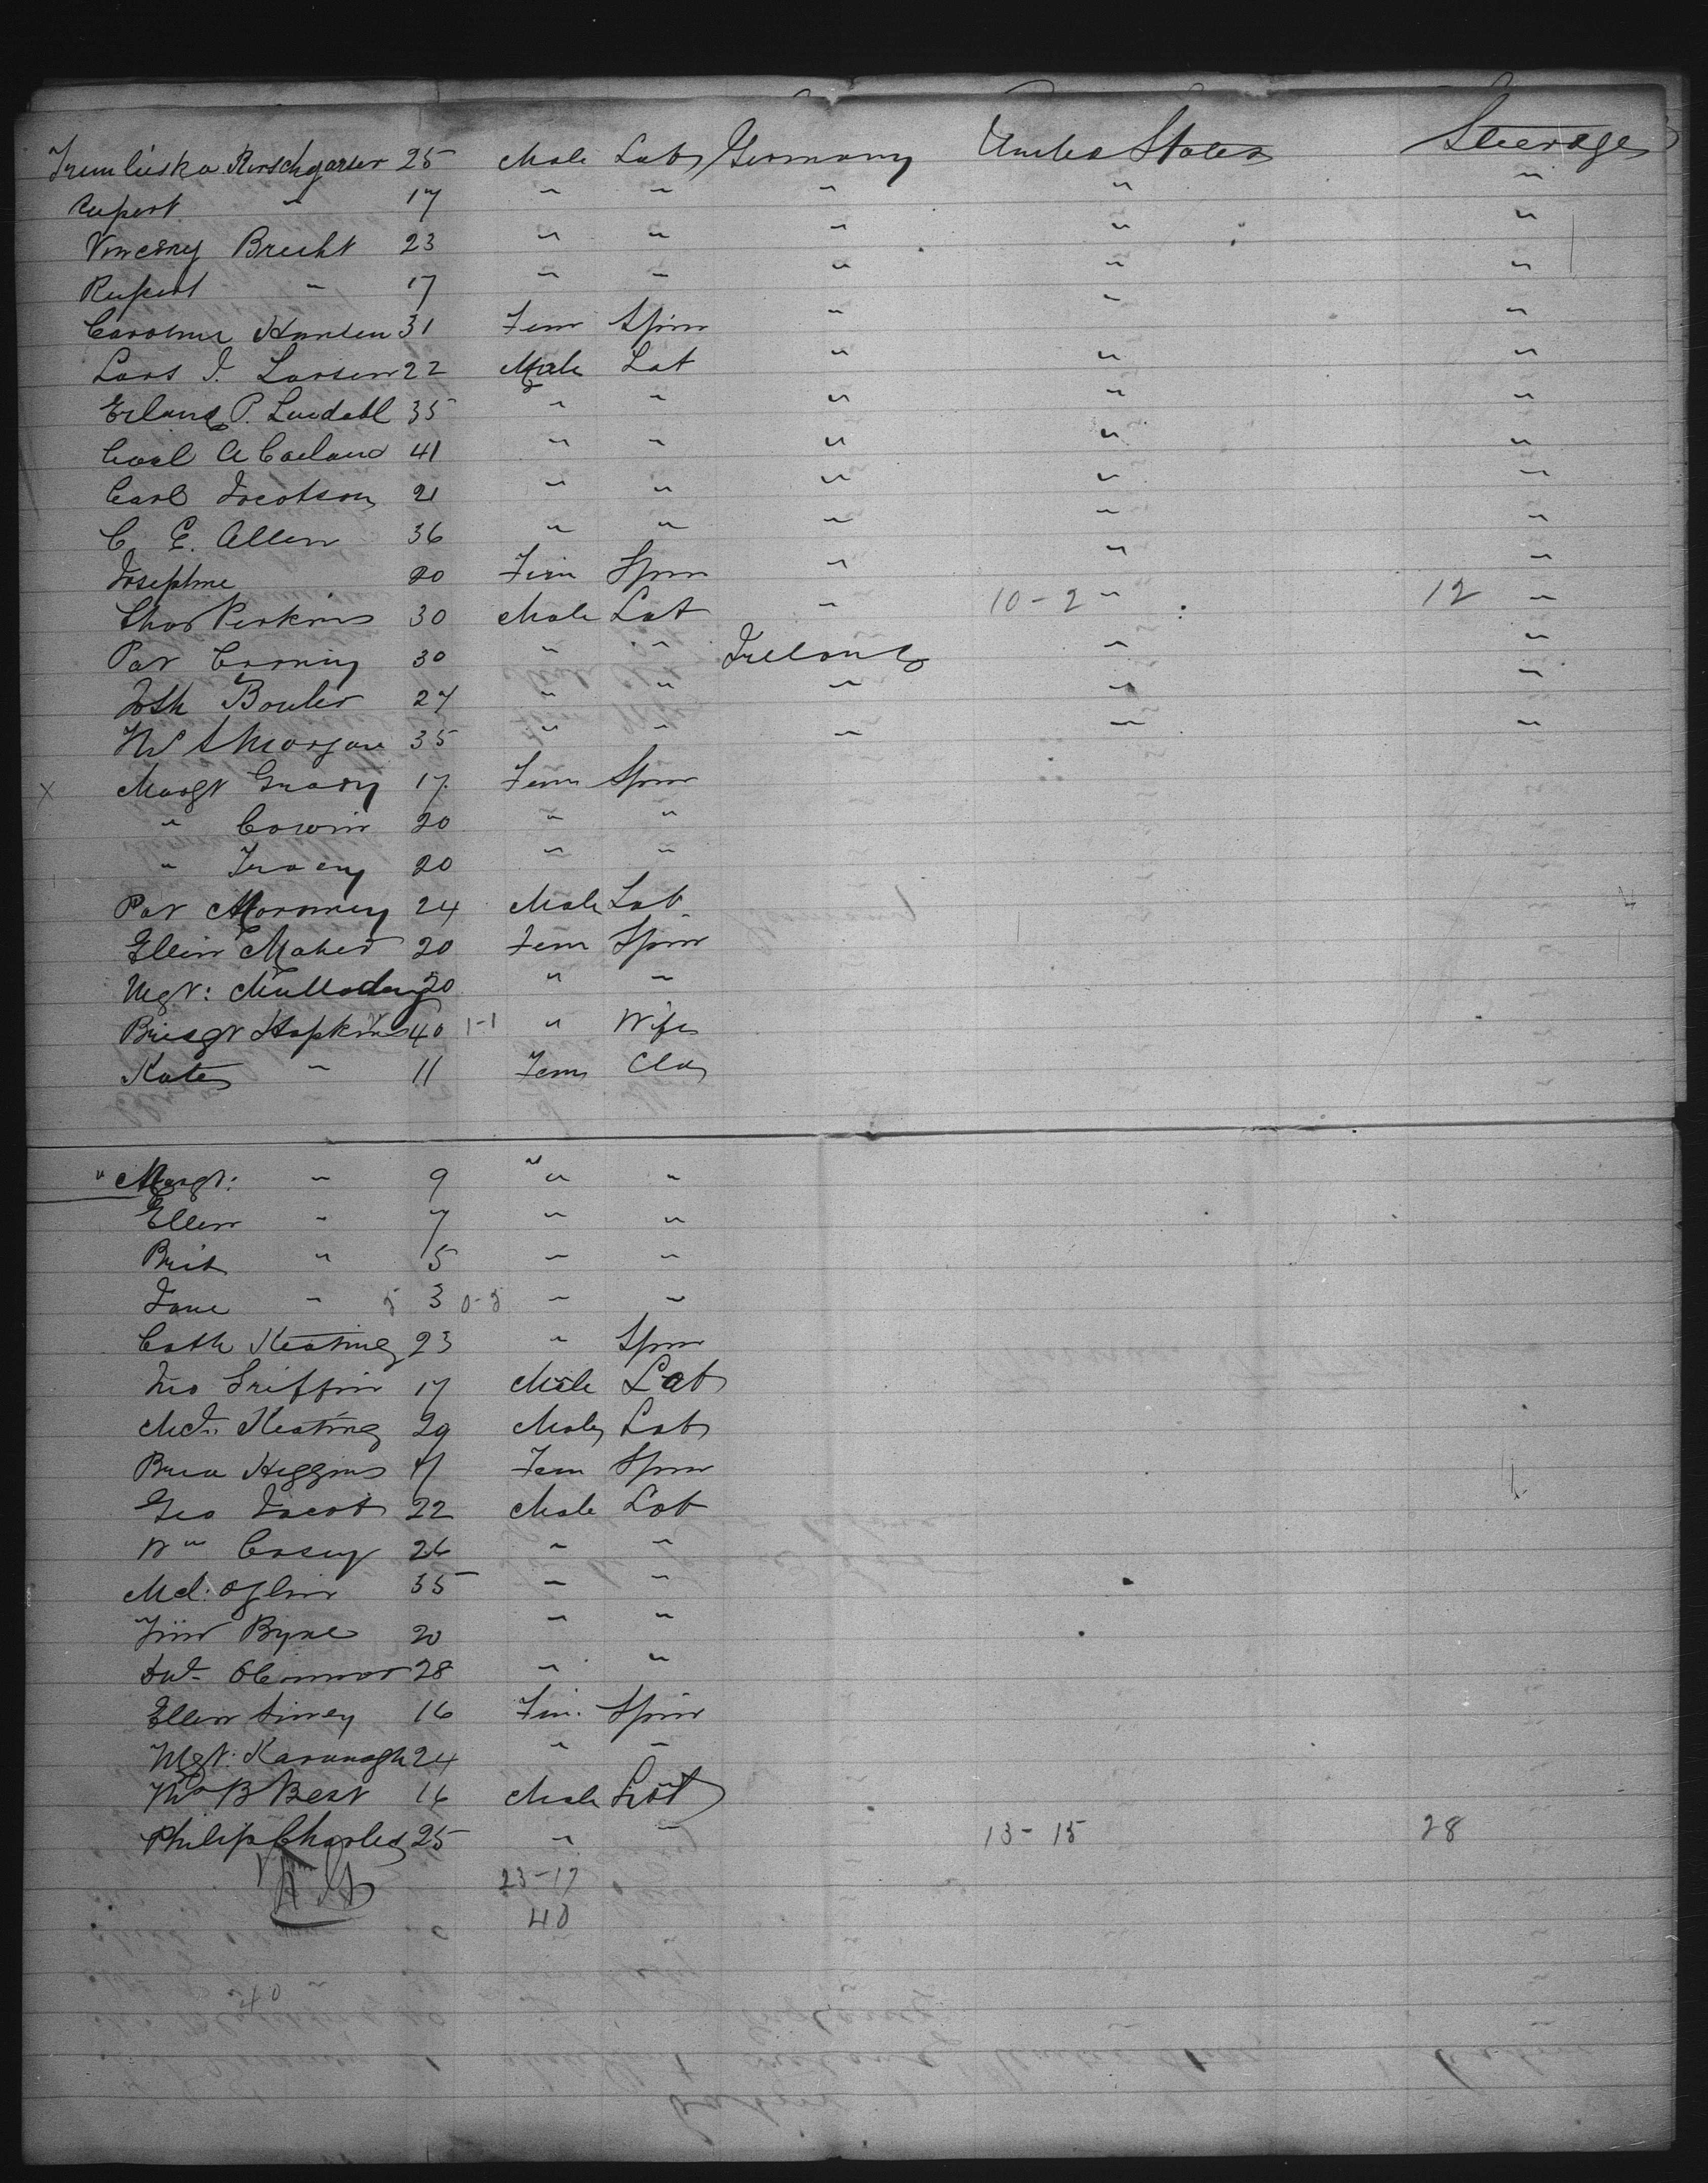 Rorschgarser 25 Male Lab Germany United States Steerage
Rupert " 17 " " " " "
Brecht 23 " " " " "
Rupert " 17 " " " " "
Caroline Hansen 31 Fem Spin " " "
Lars J. Larsen 22 Male Lab " " "
Erland P. Lindahl 35 " " " " "
Carl A 41 " " " " "
Carl Jacobson 21 " " " " "
C E. Allen 36 " " " " "
Josephine 20 Fem Spin " " "
Thos Perkins 30 Male Lab " 10-2 " 12 "
Pat 30 " " Ireland " "
Jos 27 " " " " "
Morgan 35 " " " " "
x Margt Grady 17 Fem Spin
" 20 " "
" Tracey 20 " "
Pat Moroney 24 Male Lab
Ellen Maher 20 Fem Spin
Mgt: 20 " "
Bridgt Hopkins 40 1-1 " Wife
Kate " 11 Fem Cld
" Margt: " 9 " "
Ellen " 7 " "
Brid " 5 " "
Jane " 5 3 0-5 " "
Cath Keating 23 " Spin
Jno Griffin 17 Male Lab
Keating 29 Male Lab
Higgins Fem Spin
Geo Jacob 22 Male Lab
Wm Casey 26 " "
Md. 35 " "
Byrne 20 " "
OConnor 28 " "
Ellen 16 Fem. Spin
Mgt. Kavanagh 24 " "
B Best 16 Male Lab
Philip Charles 25 " " 13-15 28
23-17
40
40